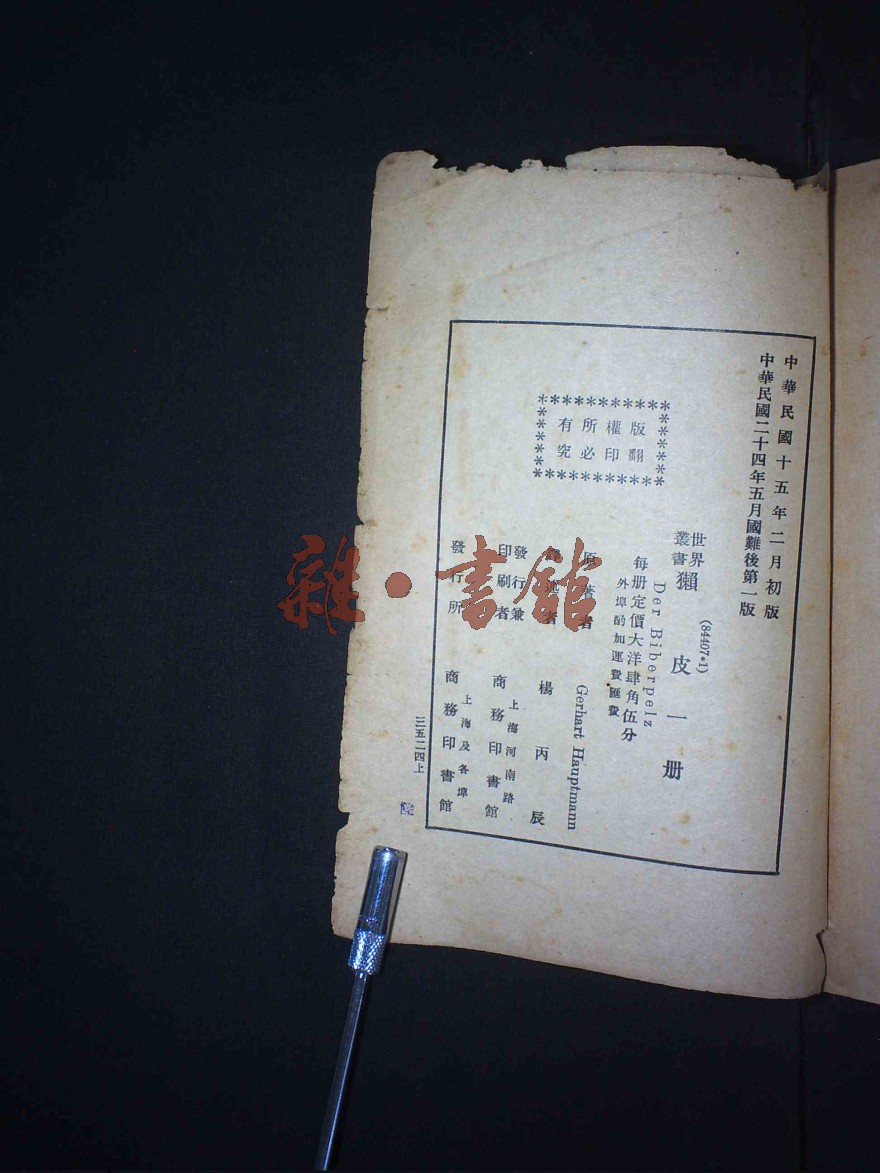 中華民國十五年二月初版
中華民國二十四年五月國難後第一版
版權所有
翻印必究
(84407·1)
世界叢書
獺皮一册
Der Biberpelz
每册定價大洋肆角伍分
外埠酌加運費匯費
原著者 Gerhart Hauptmann
者 楊丙辰
發行兼印刷者 上海河南路 商務印書館
發行所 上海及各埠 商務印書館
三五二四上
雜·書館